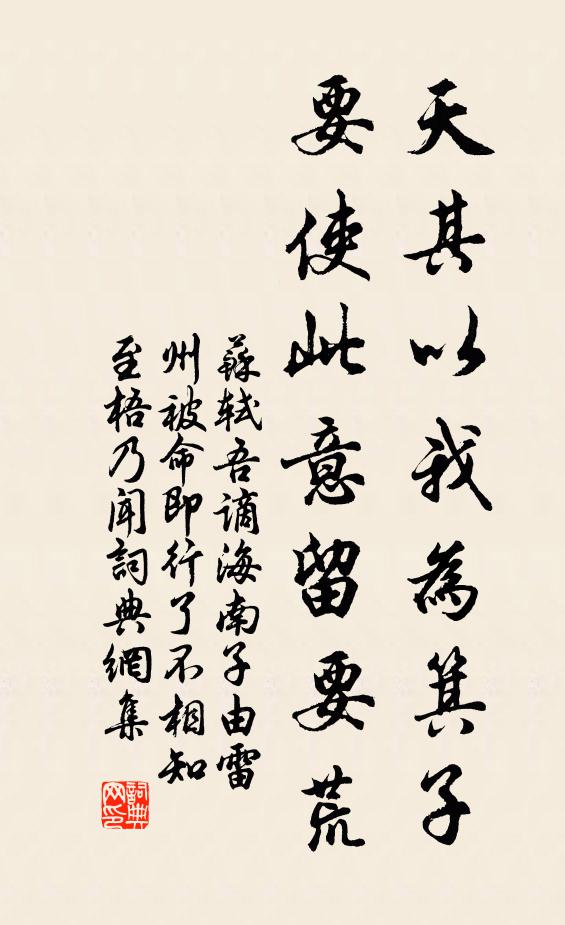 天其以我為箕子
要使此意留要荒
蘇軾吾謫海南子由雷
州被命即行了不相知
至梧乃聞詞典網集
詞典
网印